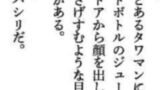 とあるタワマンに
トボトルのジュー
アから顔を出し
さげすむような目
がある。
パシリだ。